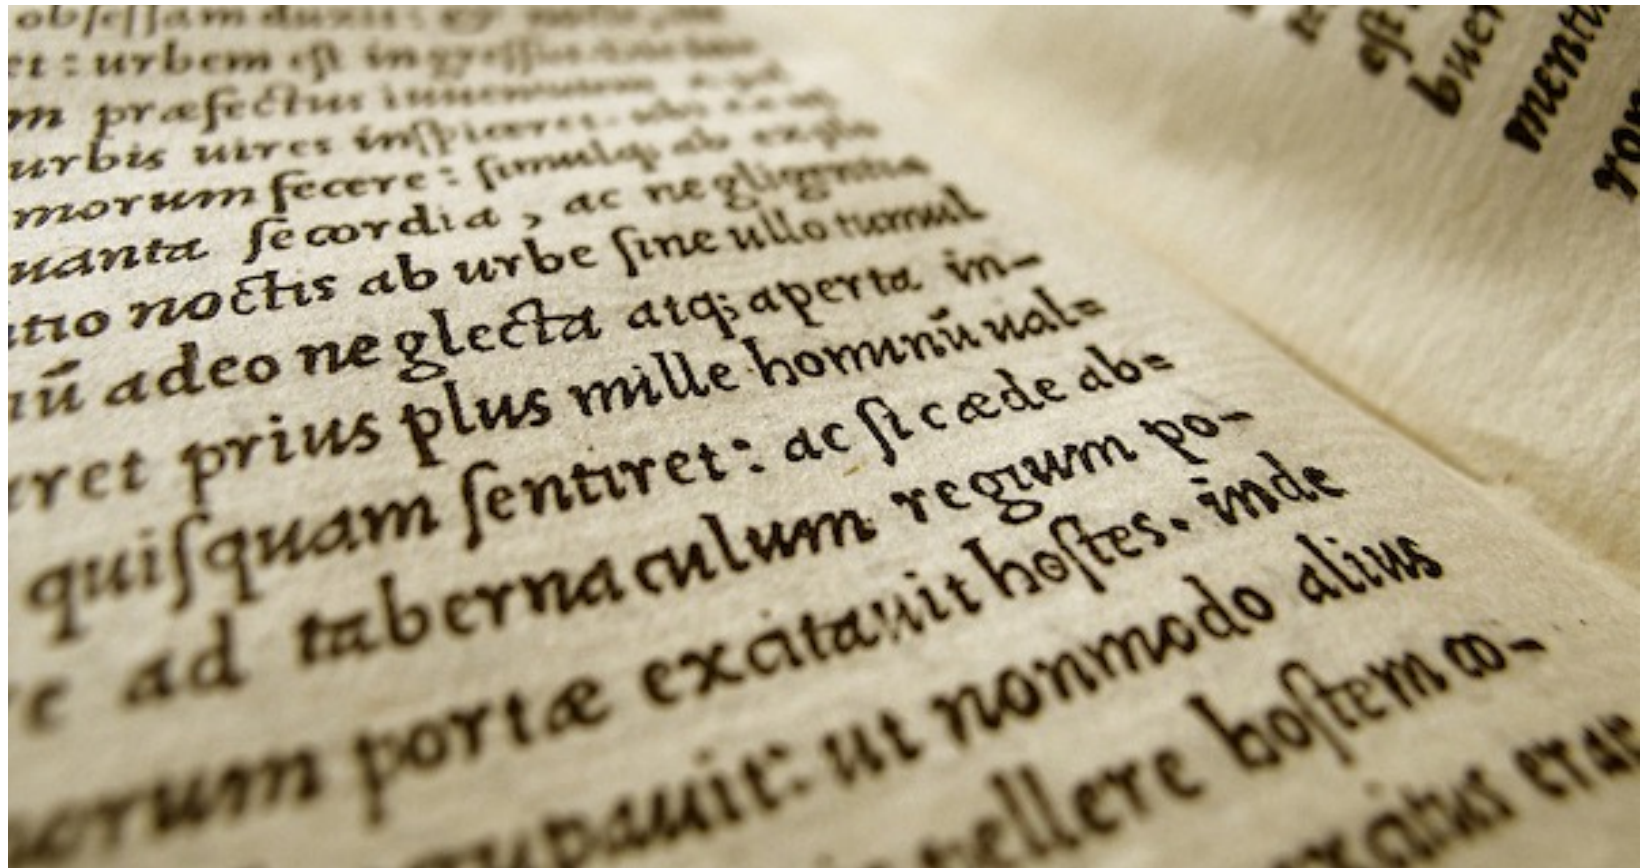 obſeſſam duxit: &
et: urbem eſt ingreſſus
m præfectus iuuentutem
urbis uires inſpiceret.
morum fecere: ſimulq; ab explo
uanta ſecordia, ac negligentia
atio noctis ab urbe ſine ullo tumul
nū adeo neglecta atq; aperta in-
rret prius plus mille hominū ual=
quiſquam ſentiret: ac ſi cæde ab=
e ad tabernaculum regium po-
norum portæ excitauit hoſtes. inde
cupauit: ut nonmodo alius
uellere hoſtem co-
excitus erat
eſt
buer
menti
ron